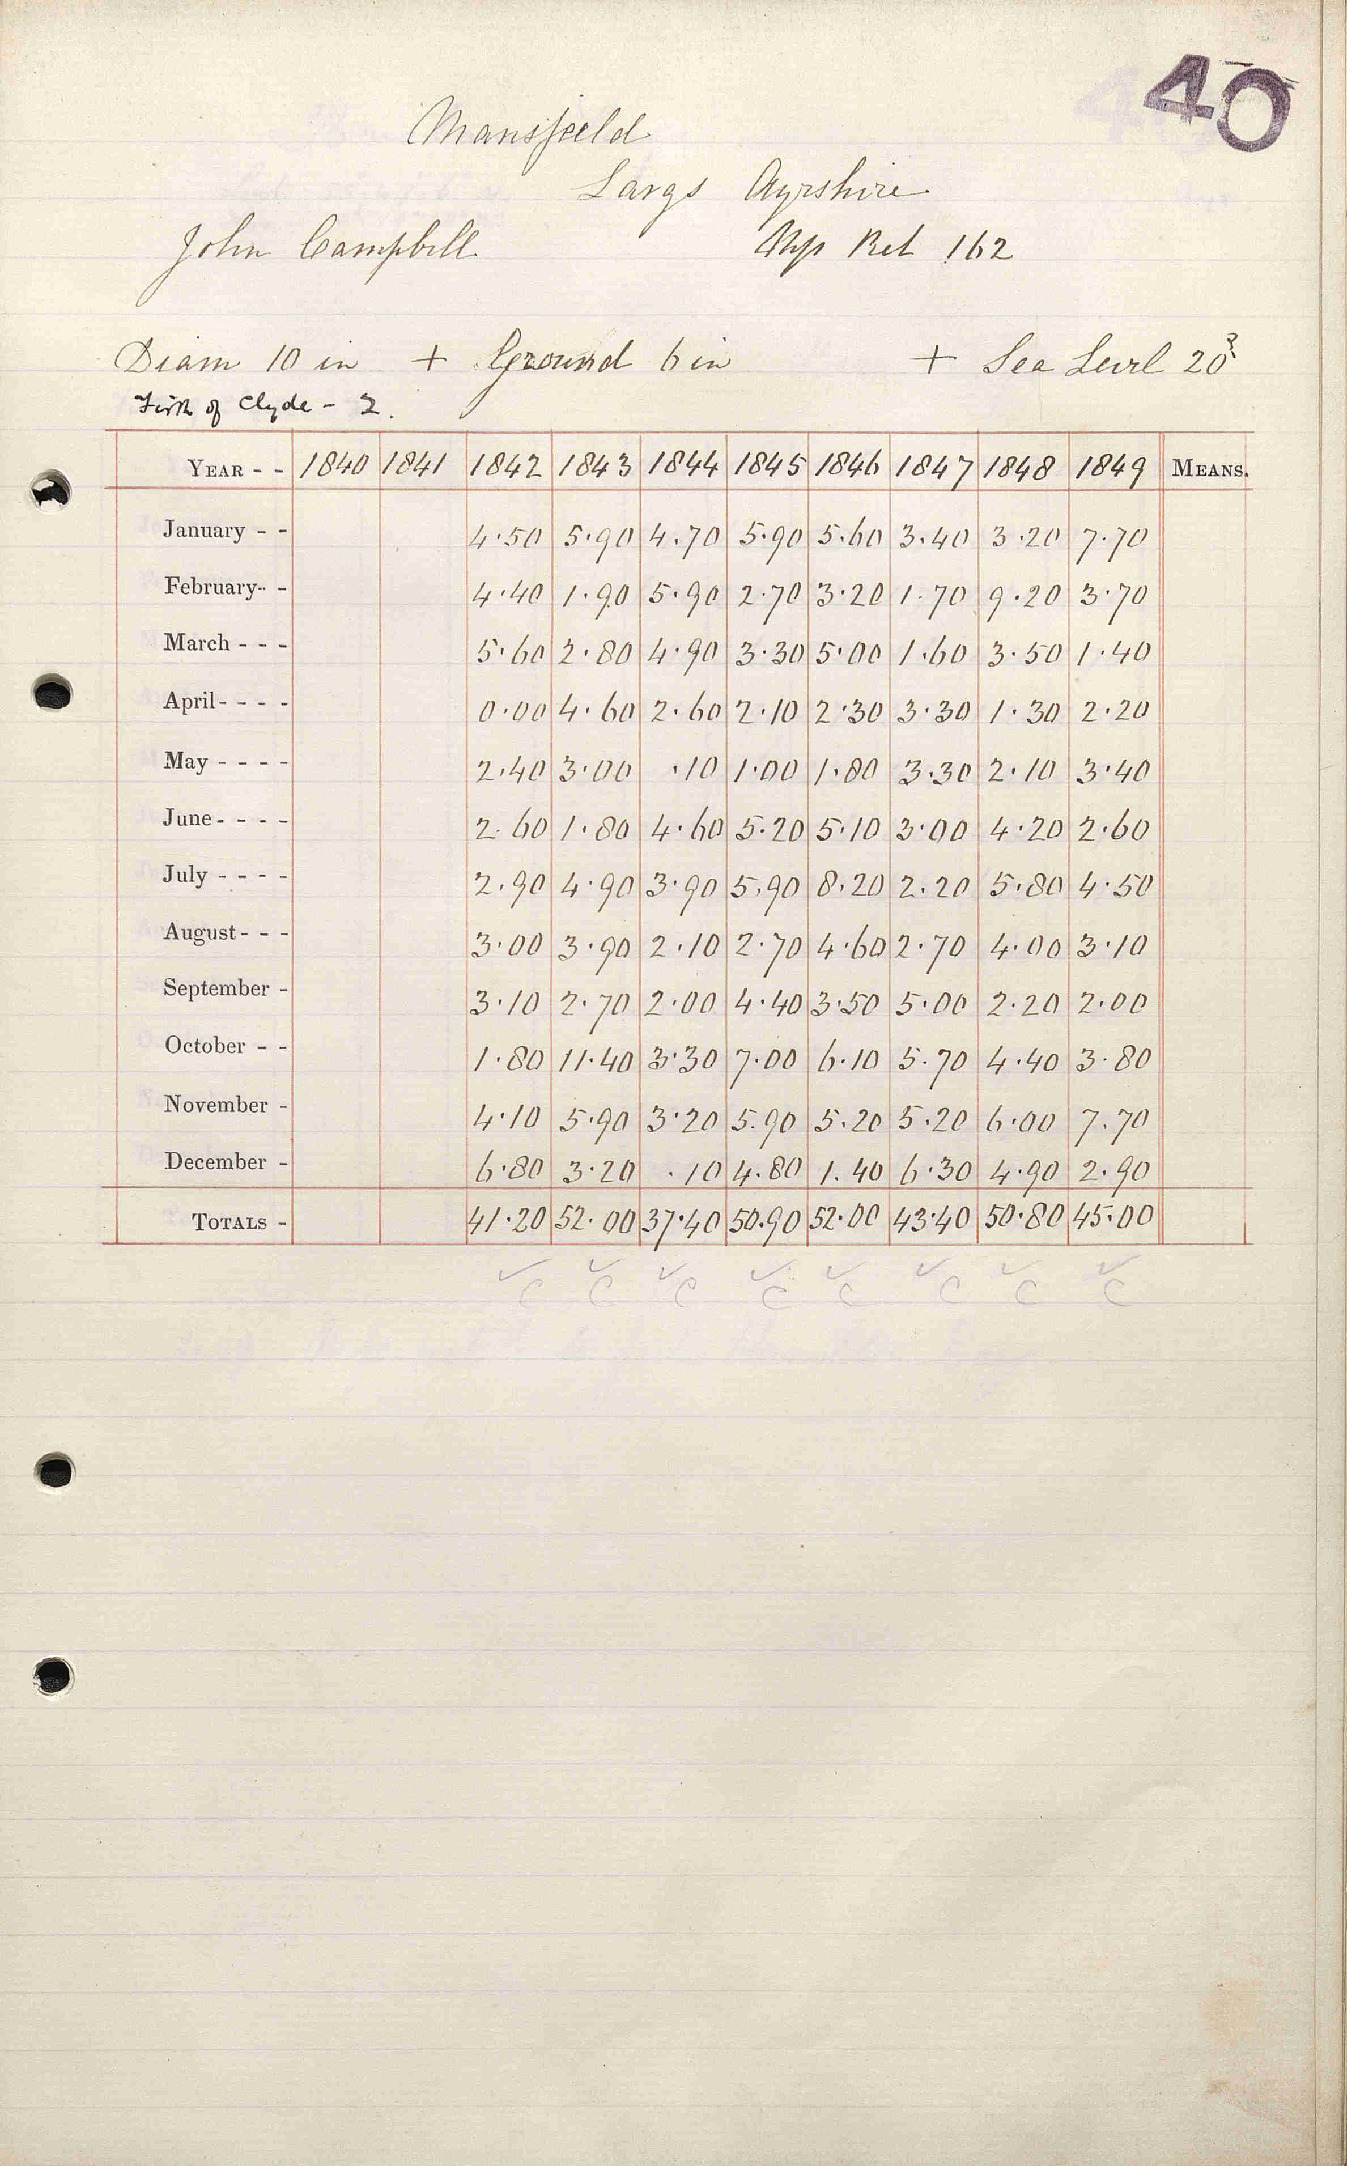 40
Mansfield
Largs Ayrshire
John Campbell Ret 162
Diam 10 in + Ground 6 in + Sea Level 20
Firth of Clyde - 2.
YEAR - - 1840 1841 1842 1843 1844 1845 1846 1847 1848 1849 MEANS.
January - - 4.50 5.90 4.70 5.90 5.60 3.40 3.20 7.70
February - - 4.40 1.90 5.90 2.70 3.20 1.70 9.20 3.70
March - - - 5.60 2.80 4.90 3.30 5.00 1.60 3.50 1.40
April - - - - 0.00 4.60 2.60 2.10 2.30 3.30 1.30 2.20
May - - - - 2.40 3.00 .10 1.00 1.80 3.30 2.10 3.40
June - - - - 2.60 1.80 4.60 5.20 5.10 3.00 4.20 2.60
July - - - - 2.90 4.90 3.90 5.90 8.20 2.20 5.80 4.50
August - - - 3.00 3.90 2.10 2.70 4.60 2.70 4.00 3.10
September - 3.10 2.70 2.00 4.40 3.50 5.00 2.20 2.00
October - - 1.80 11.40 3.30 7.00 6.10 5.70 4.40 3.80
November - 4.10 5.90 3.20 5.90 5.20 5.20 6.00 7.70
December - 6.80 3.20 .10 4.80 1.40 6.30 4.90 2.90
TOTALS - 41.20 52.00 37.40 50.90 52.00 43.40 50.80 45.00
✓ ✓ ✓ ✓ ✓ ✓ ✓ ✓
C C C C C C C C